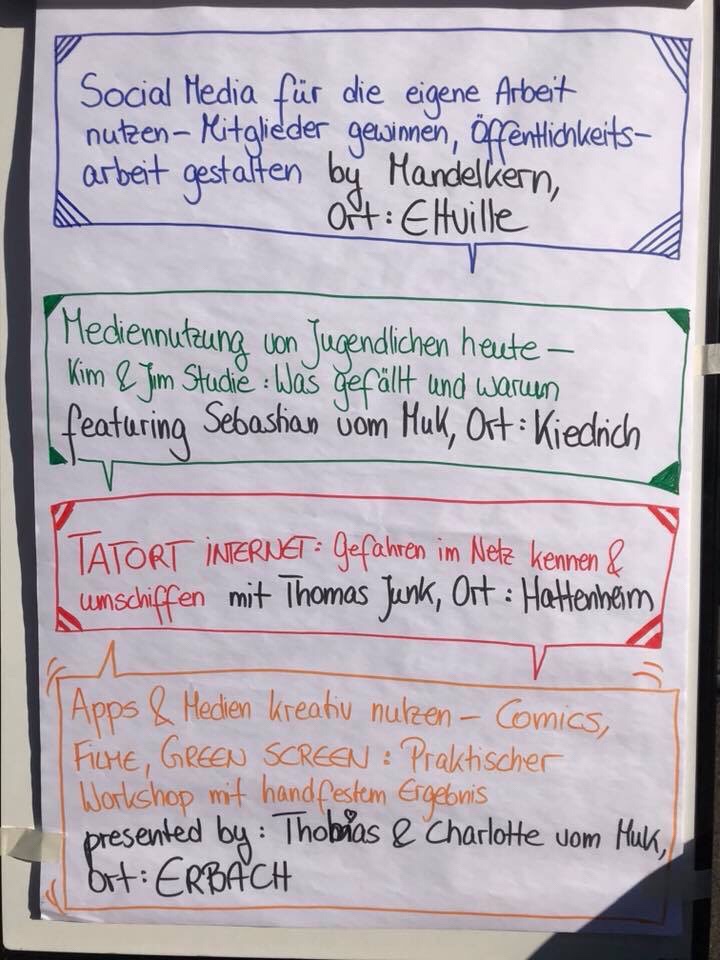 Social Media für die eigene Arbeit
nutzen – Mitglieder gewinnen, Öffentlichkeits-
arbeit gestalten by Mandelkern,
Ort: Eltville
Mediennutzung von Jugendlichen heute –
Kim & Jim Studie: Was gefällt und warum
featuring Sebastian vom Muk, Ort: Kiedrich
TATORT INTERNET: Gefahren im Netz kennen &
umschiffen mit Thomas Junk, Ort: Hattenheim
Apps & Medien kreativ nutzen – Comics,
FILME, GREEN SCREEN: Praktischer
Workshop mit handfestem Ergebnis
presented by: Thobias & Charlotte vom Muk,
Ort: ERBACH